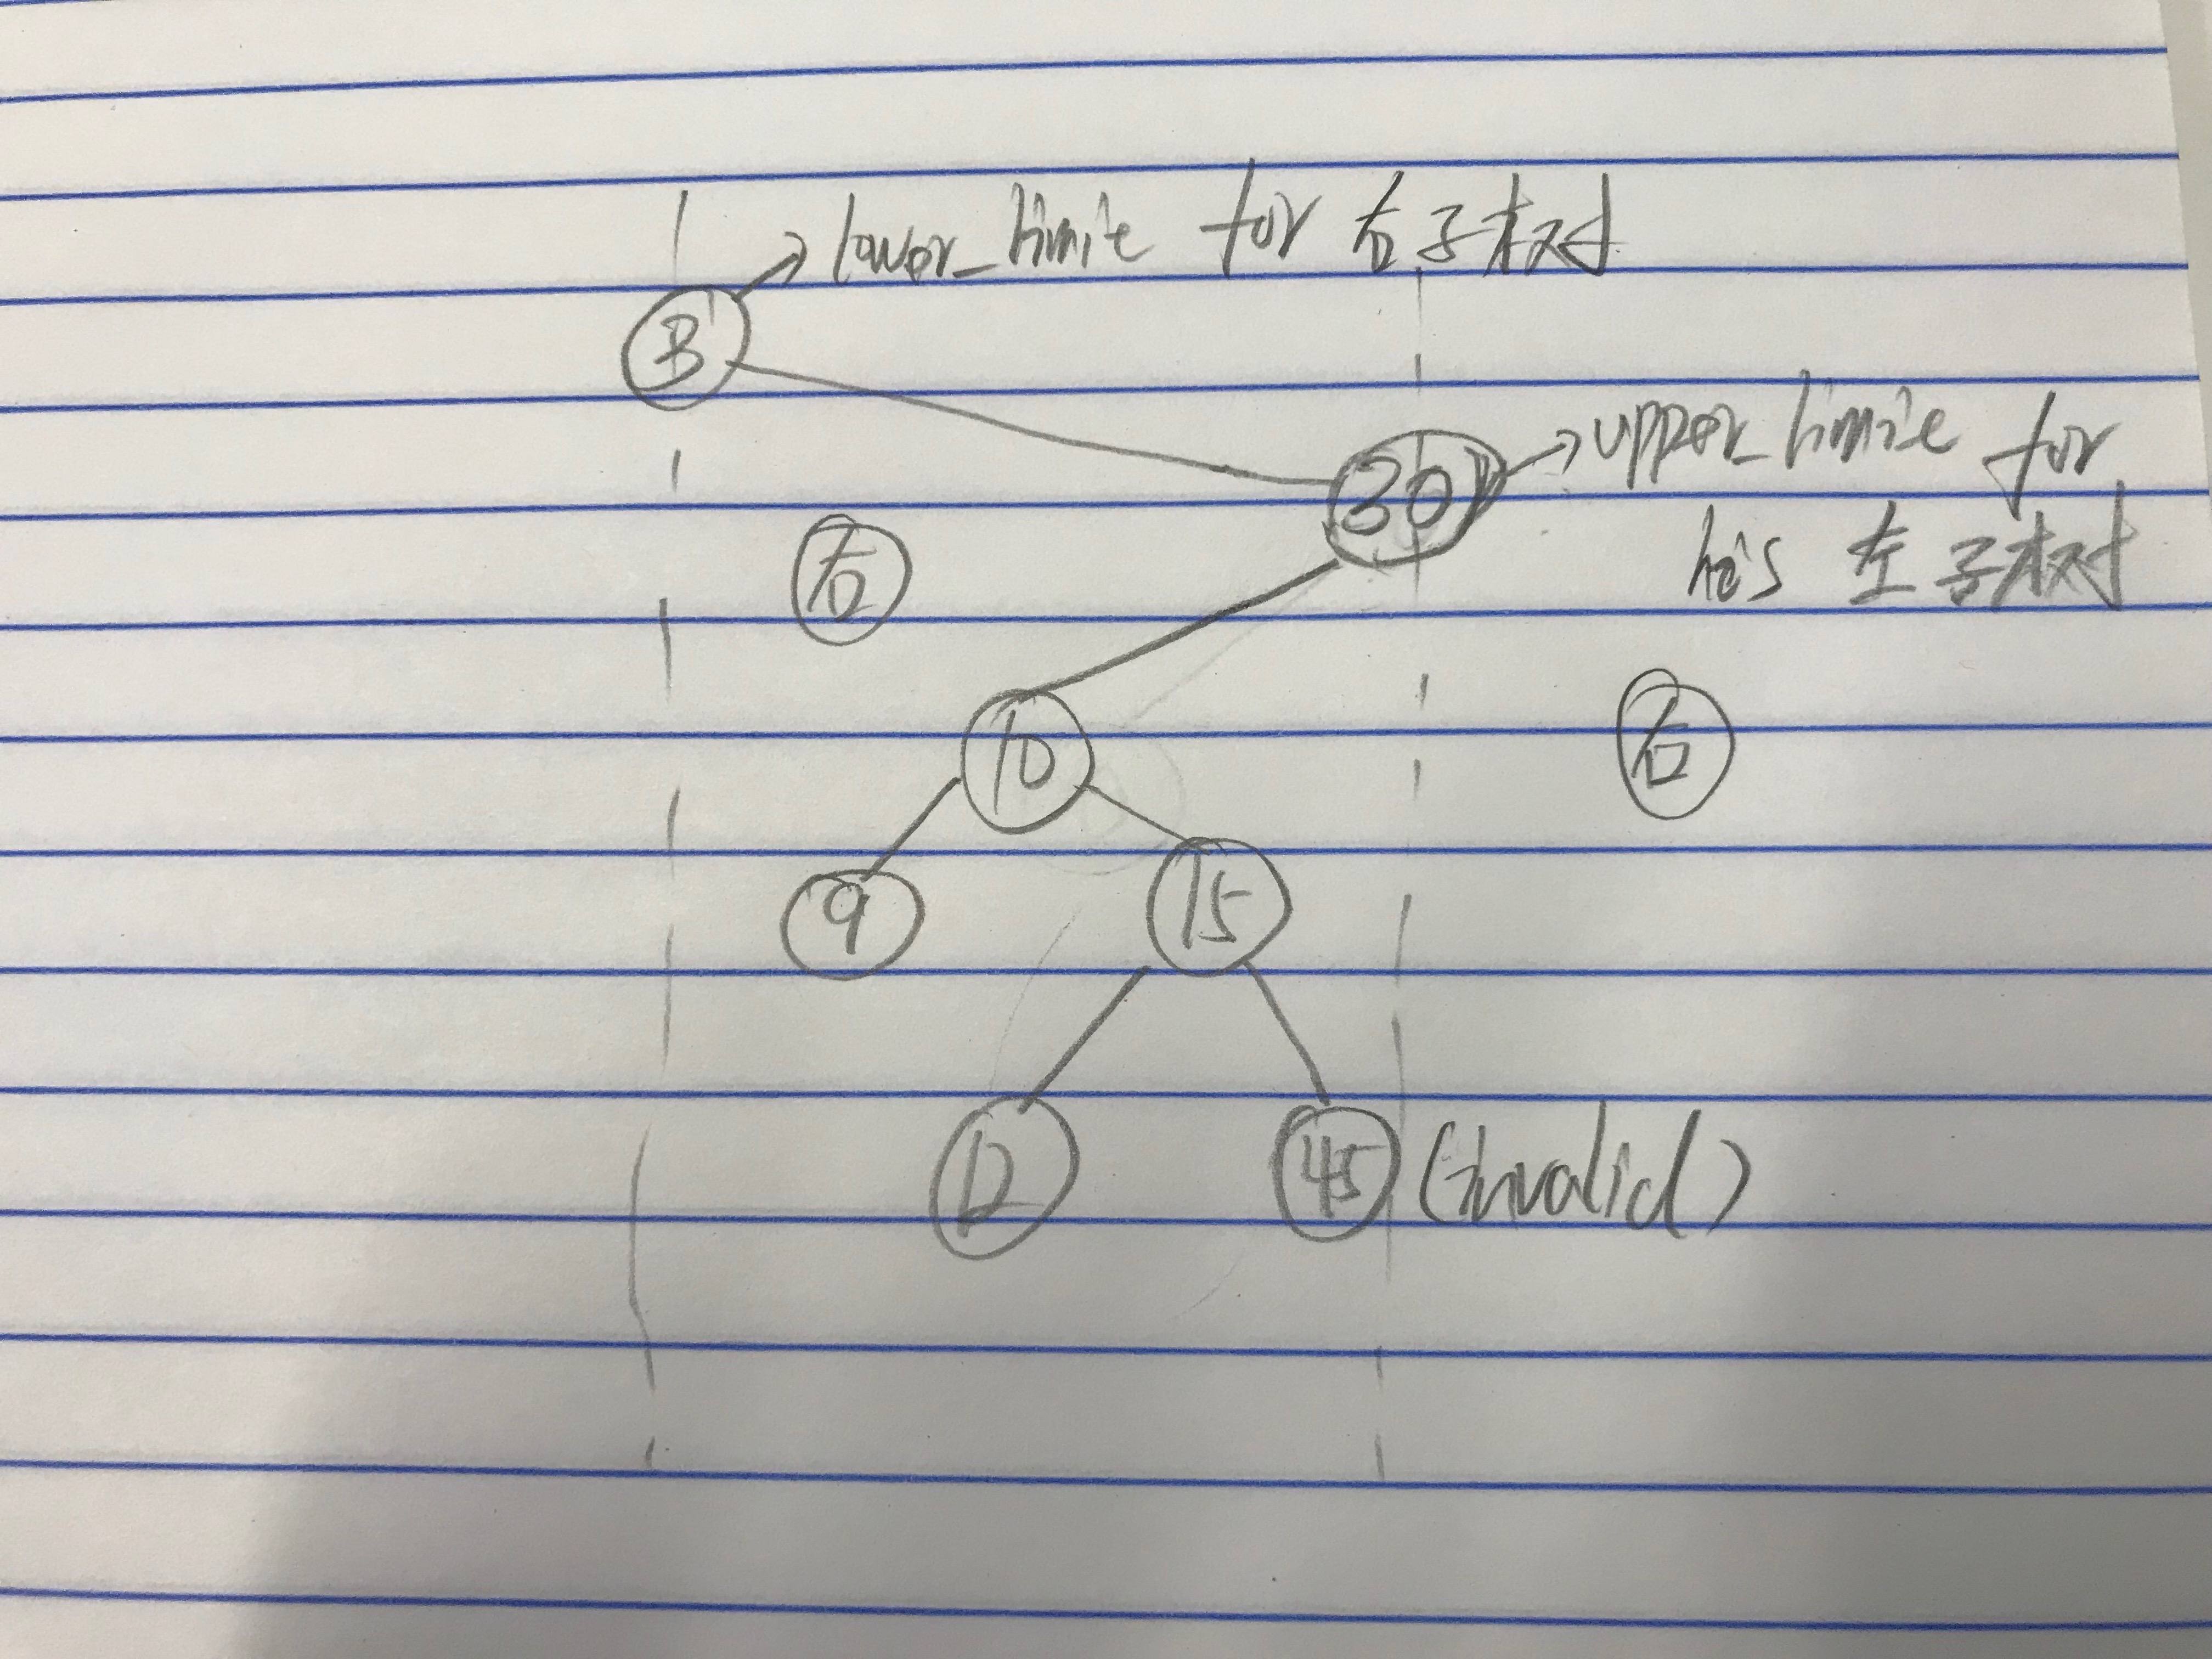 lower_limite for 右子树
3
30
upper_limite for
his 左子树
右
右
10
9
15
12
45 (invalid)